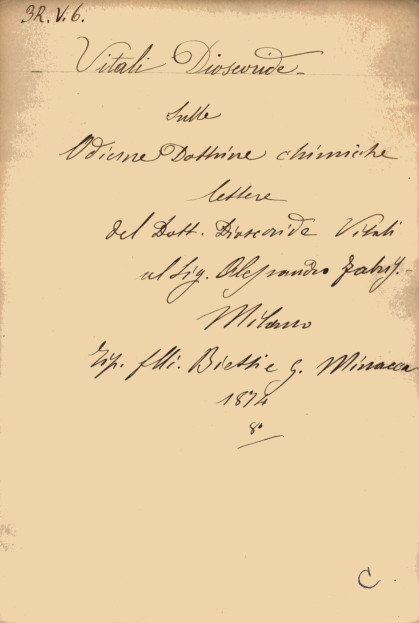 3R.V.6.
Vitali Dioscoride
Sulle
Odierne Dottrine chimiche
lettere
del Dott. Dioscoride Vitali
al Sig. Alessandro
Milano
Tip. flli. Bietti e G. Minacca
1874
8°
C.